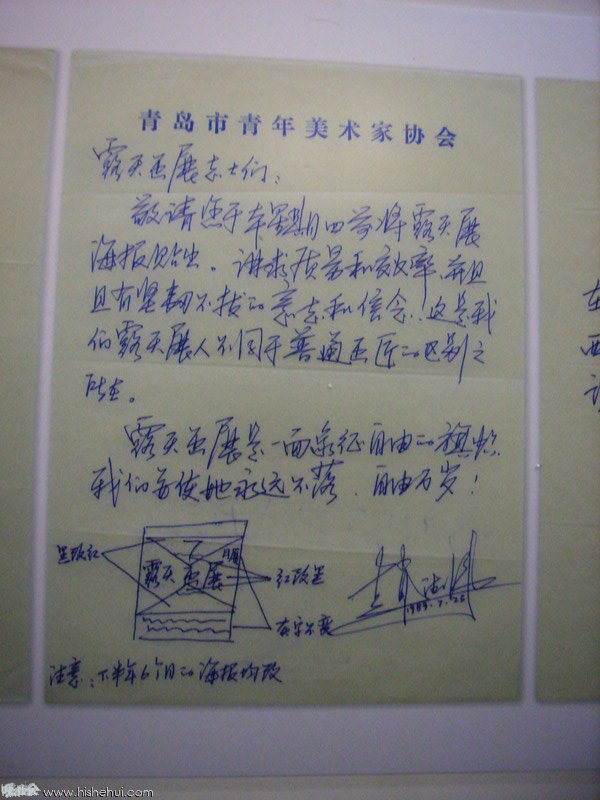 青岛市青年美术家协会
露天画展志士们：
敬请您于本星期四前将露天展
海报贴出。讲求质量和效率，并且
具有坚韧不拔的意志和信念，这是我
们露天展人不同于普通画匠的区别之
所在。
露天画展是一面象征自由的旗帜
我们要使她永远不落，自由万岁！
黑改红
露天画展
红改黑
灰字不变
1989.7.22
注意：下半年6个月的海报均改
在
西
www.hishehui.com